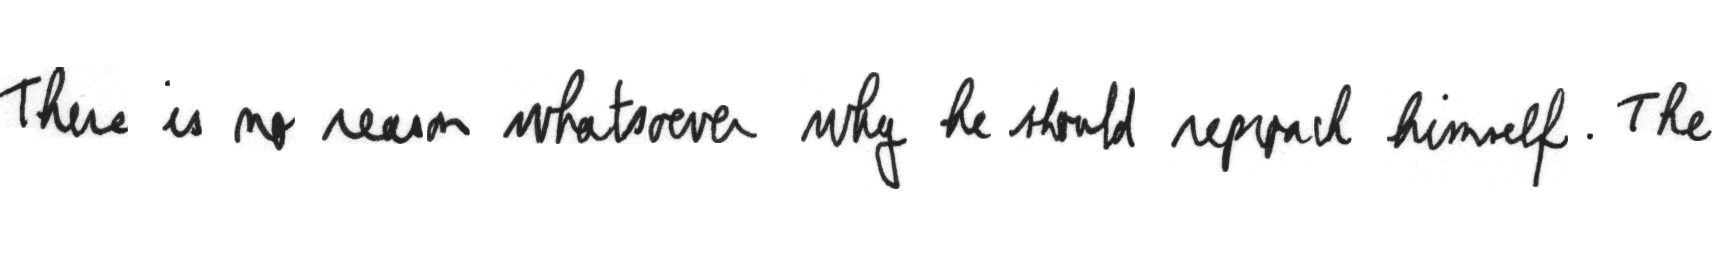 There is no reason whatsoever why he should reproach himself. The